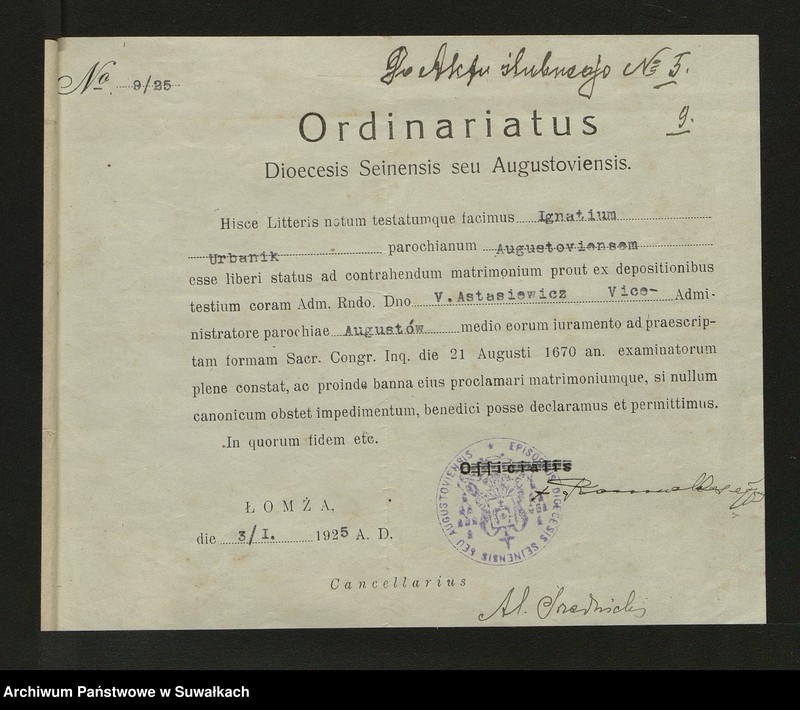 Do Aktu ślubnego № 5.
No 9/25
9.
Ordinariatus
Dioecesis Seinensis seu Augustoviensis.
Hisce Litteris notum testatumque facimus Ignatium
Urbanik parochianum Augustoviensem
esse liberi status ad contrahendum matrimonium prout ex depositionibus
testium coram Adm. Rndo. Dno V. Astasiewicz Vice- Admi-
nistratore parochiae Augustów medio eorum iuramento ad praescrip-
tam formam Sacr. Congr. Inq. die 21 Augusti 1670 an. examinatorum
plene constat, ac proinde banna eius proclamari matrimoniumque, si nullum
canonicum obstet impedimentum, benedici posse declaramus et permittimus.
In quorum fidem etc.
Officialis
DIOECESIS SEINENSIS SEU AUGUSTOVIENSIS
ŁOMŻA,
die 3/I. 1925 A. D.
Cancellarius
Al.
Archiwum Państwowe w Suwałkach